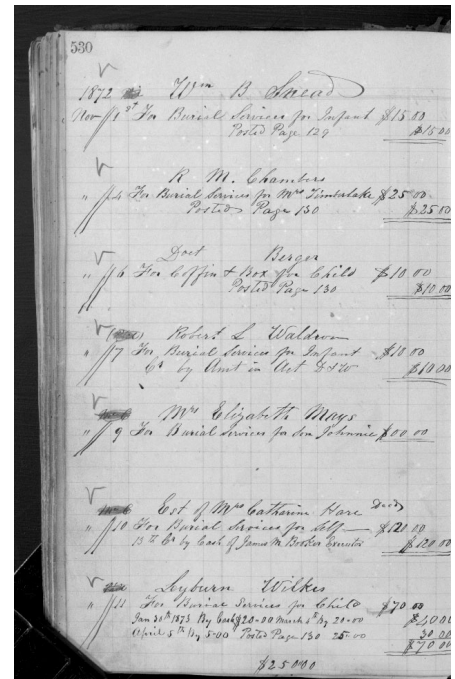 530
1872 Wm B Snead
Nov 1st For Burial Services for Infant $15 00
Posted Page 129 $15 00
R. M. Chambers
" 4 For Burial Services for Mrs Timberlake $25 00
Posted Page 130 $25 00
Doct Berger
" 6 For Coffin & Box for Child $10 00
Posted Page 130 $10 00
Robert L Waldron
" 7 For Burial Services for Infant $10 00
Cr by Amt in Act D & W $10 00
Mrs Elizabeth Mays
" 9 For Burial Services for son Johnnie $00 00
Est of Mrs Catharine Hare Decd
" 10 For Burial Services for Self $120 00
13th Cr by Cash of James M. Booker Executor $120 00
Leyburn Wilkes
" 11 For Burial Services for Child $70 00
Jan 30th 1873 By Cash $20-00 March 5th By 20-00 $40 00
April 5th By 5-00 Posted Page 130 25-00 30 00
$70 00
$250 00